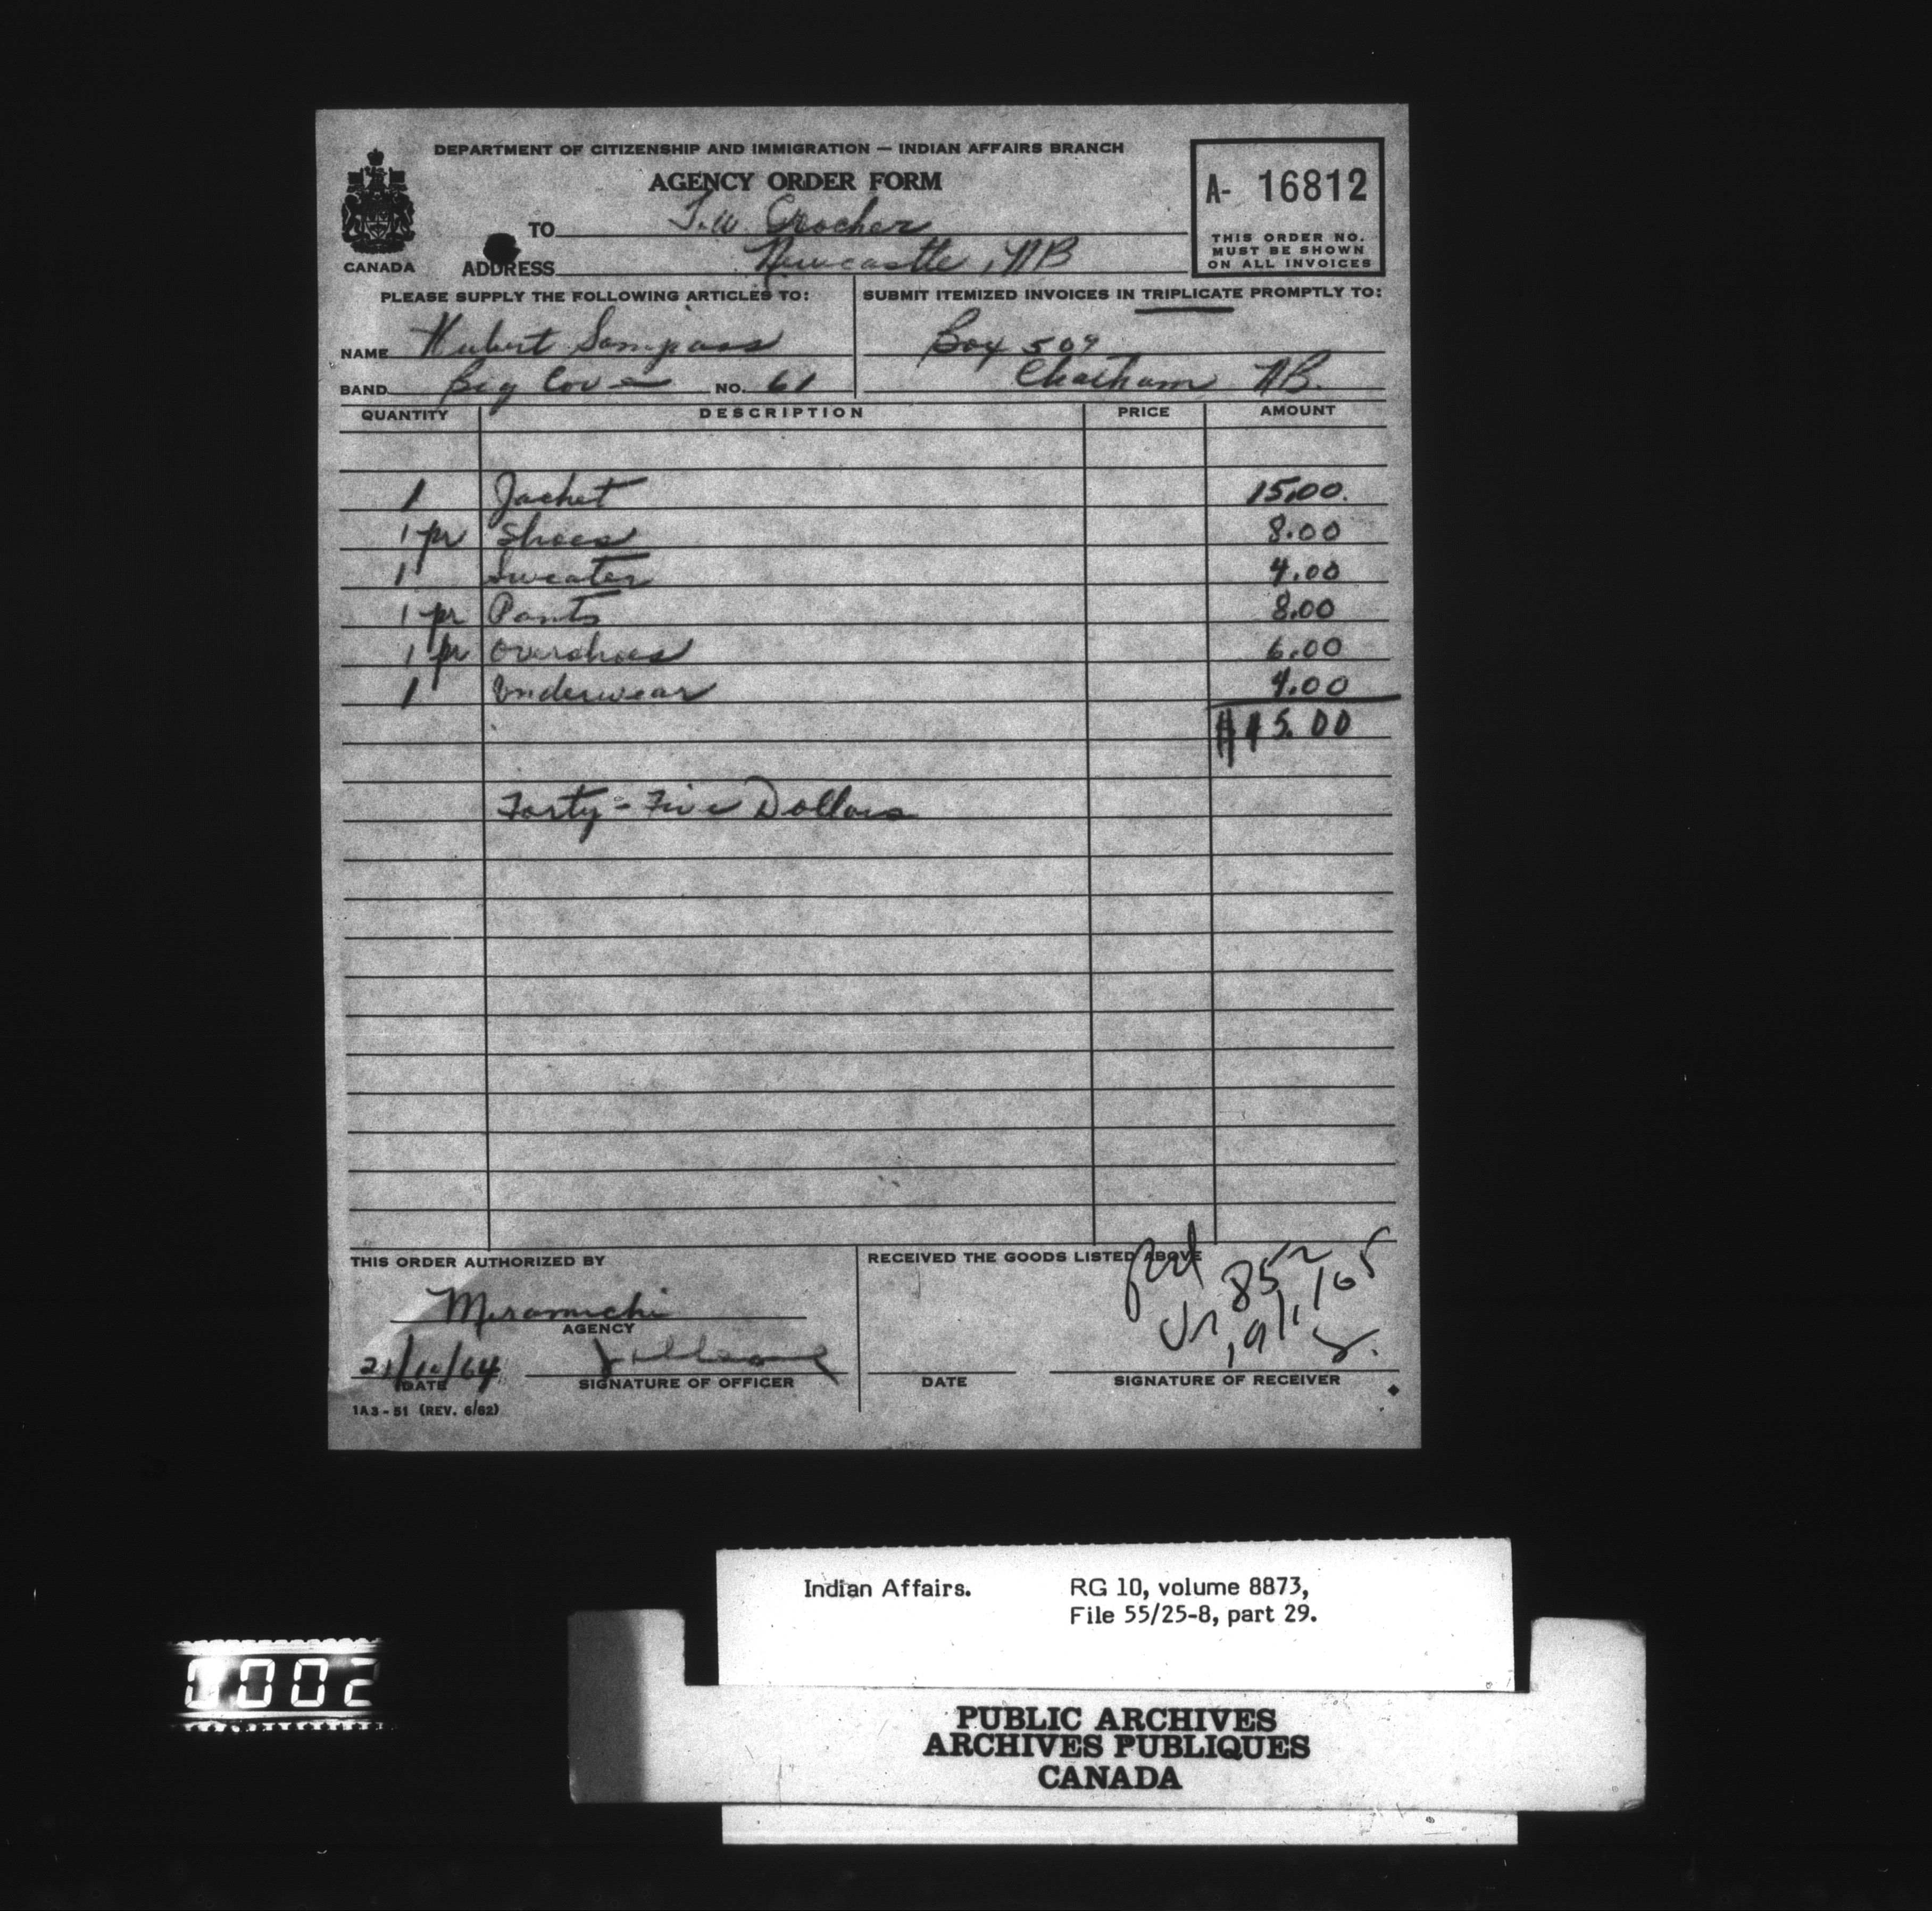 DEPARTMENT OF CITIZENSHIP AND IMMIGRATION — INDIAN AFFAIRS BRANCH
AGENCY ORDER FORM
A- 16812
THIS ORDER NO.
MUST BE SHOWN
ON ALL INVOICES
CANADA
TO T.W. Crocker
ADDRESS Newcastle, NB
PLEASE SUPPLY THE FOLLOWING ARTICLES TO:
NAME Hubert Sompass
BAND Big Cove NO. 61
SUBMIT ITEMIZED INVOICES IN TRIPLICATE PROMPTLY TO:
Box 509
Chatham NB.
QUANTITY DESCRIPTION PRICE AMOUNT
1 Jacket 15.00.
1 pr Shoes 8.00
1 Sweater 4.00
1 pr Pants 8.00
1 pr Overshoes 6.00
1 Underwear 4.00
$45.00
Forty-Five Dollars
THIS ORDER AUTHORIZED BY
Miramichi
AGENCY
21/10/64
DATE SIGNATURE OF OFFICER
1A3-51 (REV. 6/62)
RECEIVED THE GOODS LISTED ABOVE
DATE SIGNATURE OF RECEIVER
Indian Affairs. RG 10, volume 8873,
File 55/25-8, part 29.
0002
PUBLIC ARCHIVES
ARCHIVES PUBLIQUES
CANADA